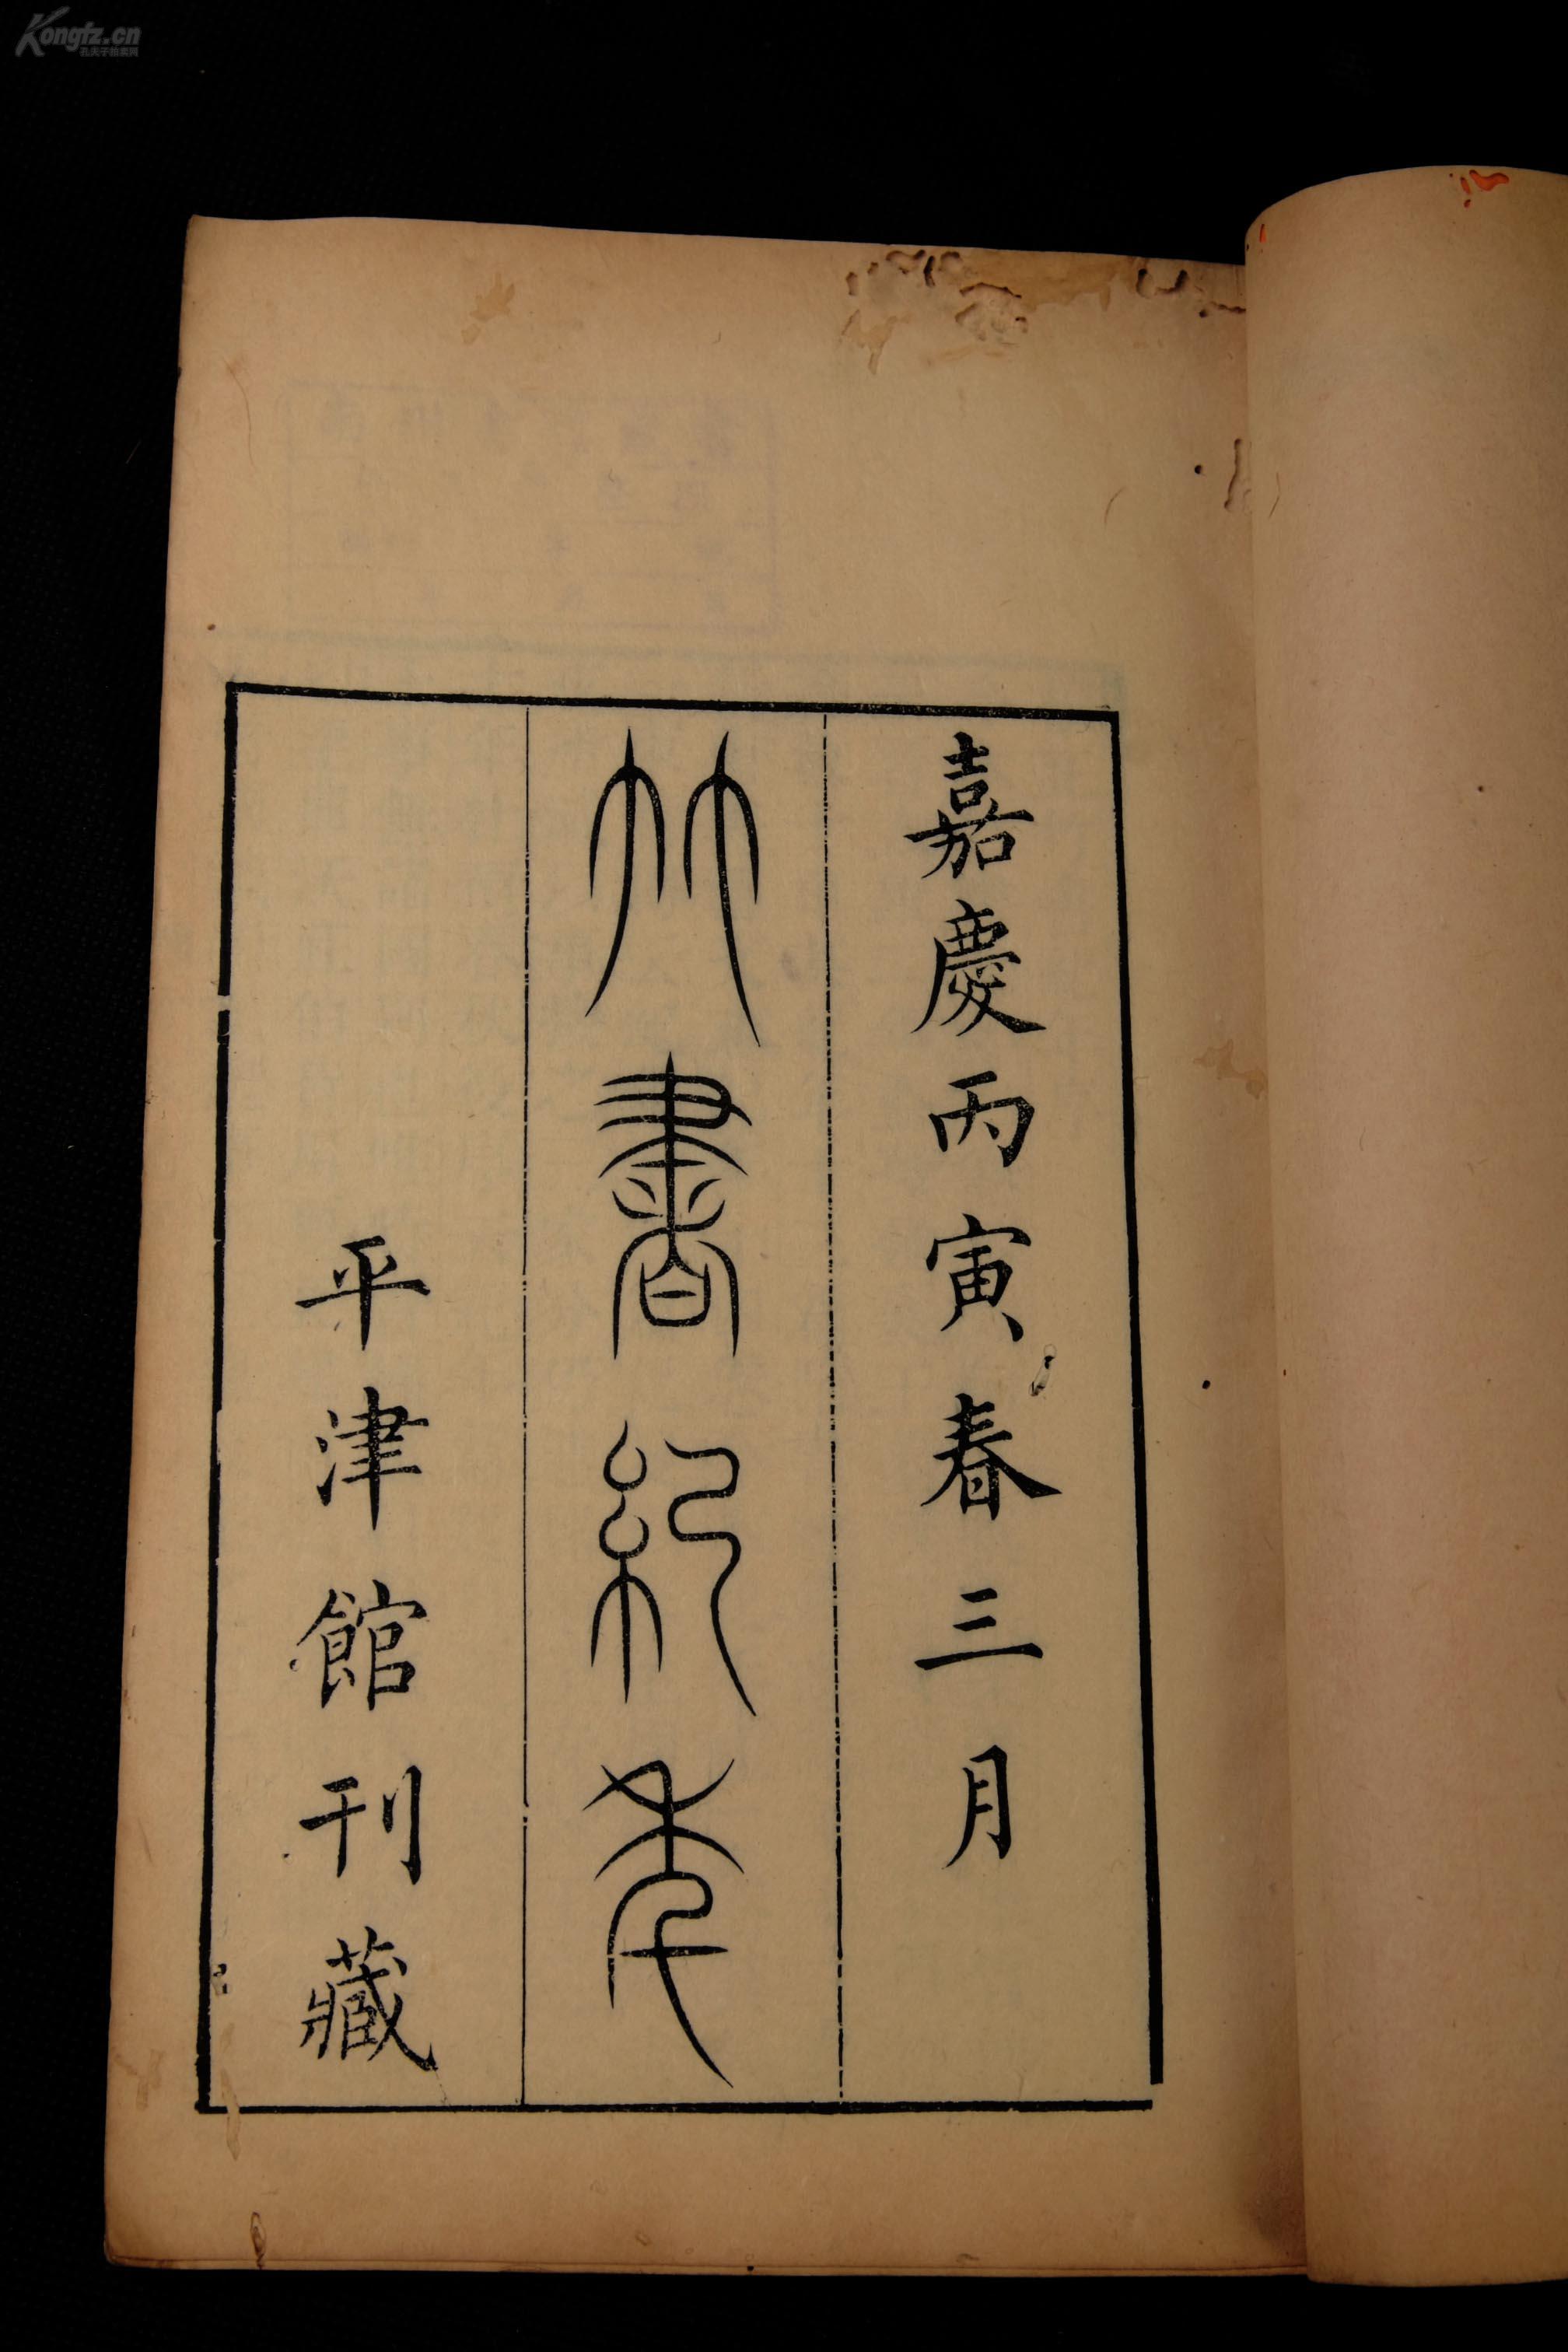 嘉慶丙寅春三月
竹書紀年
平津館刊藏
Kongfz.cn
孔夫子拍卖网